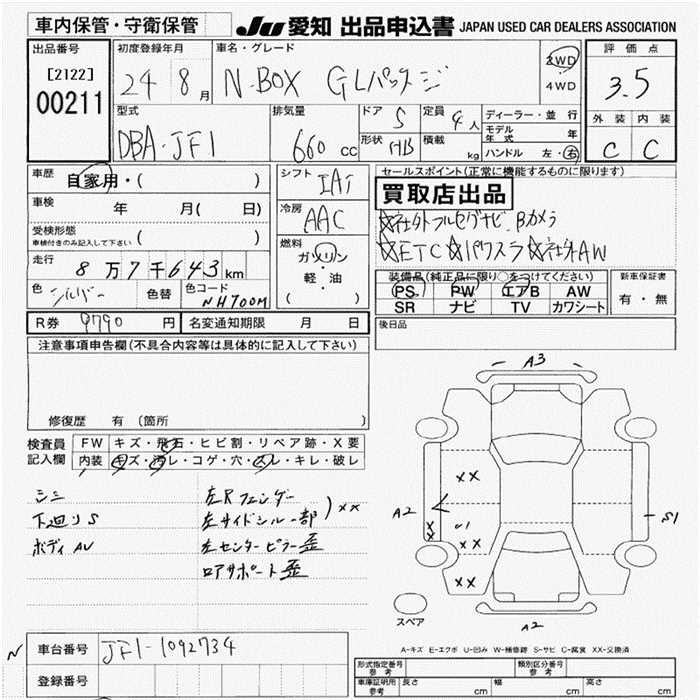 車内保管・守衛保管
JU 愛知 出品申込書 JAPAN USED CAR DEALERS ASSOCIATION
出品番号
[2122]
00211
初度登録年月
24 8月
車名・グレード
N-BOX GLパッケージ
2WD
4WD
評価点
3.5
外装 内装
C C
型式
DBA-JF1
排気量
660 cc
ドア 5
形状 HB
定員 4人
積載 kg
ディーラー・並行
モデル年式 年
ハンドル 左・右
車歴
自家用・( )
車検 年 月( 日)
受検形態
車検付きのみ記入して下さい ( )
走行
8万7千643km
色 シルバー 色替 色コード NH700M
シフト IAT
冷房 AAC
燃料
ガソリン
軽・油
( )
セールスポイント(正常に機能するものに限ります)
買取店出品
☆社外フルセグナビ Bカメラ
☆ETC ☆パワスラ ☆社外AW
装備品(純正品に限り○をつけてください)
PS PW エアB AW
SR ナビ TV カワシート
新車保証書
有・無
後日品
R券 9790 円 名変通知期限 月 日
注意事項申告欄(不具合内容等は具体的に記入して下さい)
修復歴 有 (箇所 )
検査員
記入欄
FW キズ・飛石・ヒビ割・リペア跡・X要
内装 キズ・汚レ・コゲ・穴・スレ・キレ・破レ
シミ
下廻りS
ボディAU
左Rフェンダー
左サイドシル一部 ) ××
左センターピラー歪
ロアサポート歪
A3
××
A2
××
U1
××
S1
××
スペア
A2
A-キズ E-エクボ U-凹み W-補修跡 S-サビ C-腐食 XX-交換済
N
車台番号 JF1-1092734
登録番号
形式指定番号
参考
類別区分番号
参考
車庫証明用
参考
長さ cm 幅 cm 高さ cm